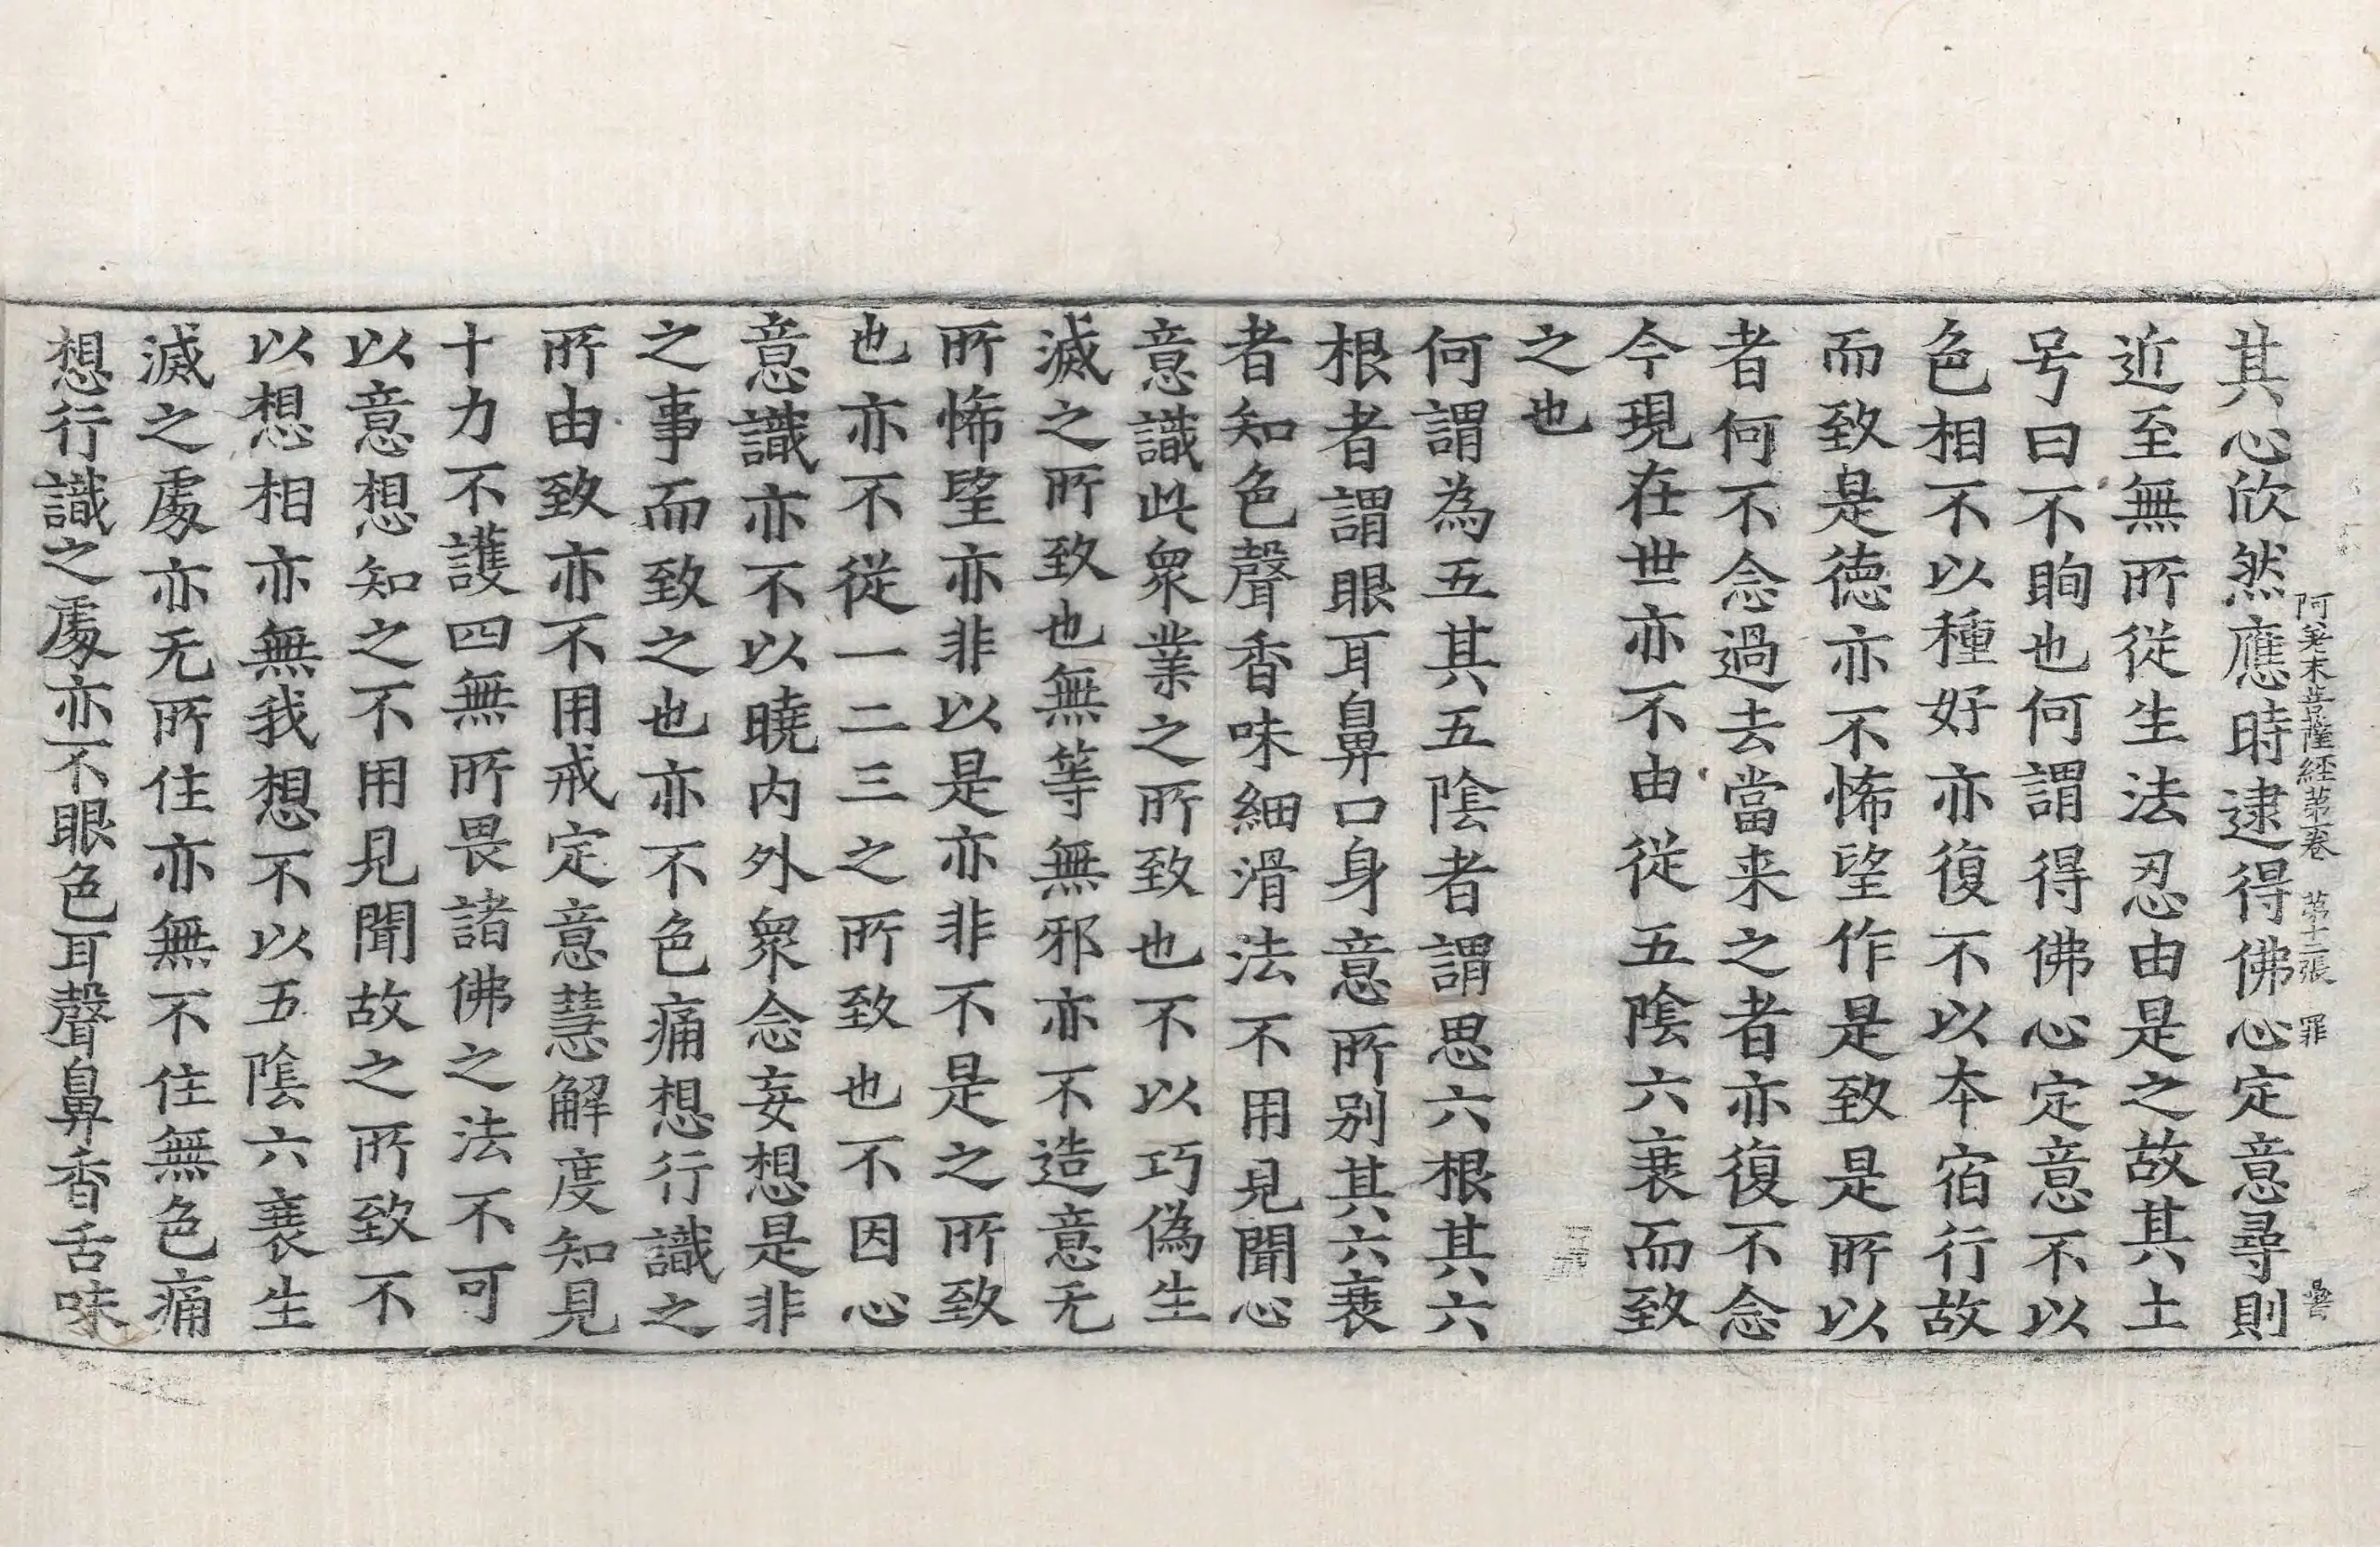 阿差末菩薩經第一卷　第十二張　罪
其心欣然應時逮得佛心定意尋則
近至無所從生法忍由是之故其土
号曰不眴也何謂得佛心定意不以
色相不以種好亦復不以本宿行故
而致是德亦不悕望作是致是所以
者何不念過去當来之者亦復不念
今現在世亦不由從五陰六衰而致
之也
何謂為五其五陰者謂思六根其六
根者謂眼耳鼻口身意所别其六衰
者知色聲香味細滑法不用見聞心
意識此衆業之所致也不以巧偽生
滅之所致也無等無邪亦不造意无
所悕望亦非以是亦非不是之所致
也亦不從一二三之所致也不因心
意識亦不以曉内外衆念妄想是非
之事而致之也亦不色痛想行識之
所由致亦不用戒定意慧解度知見
十力不護四無所畏諸佛之法不可
以意想知之不用見聞故之所致不
以想相亦無我想不以五陰六衰生
滅之處亦无所住亦無不住無色痛
想行識之處亦不眼色耳聲鼻香舌味